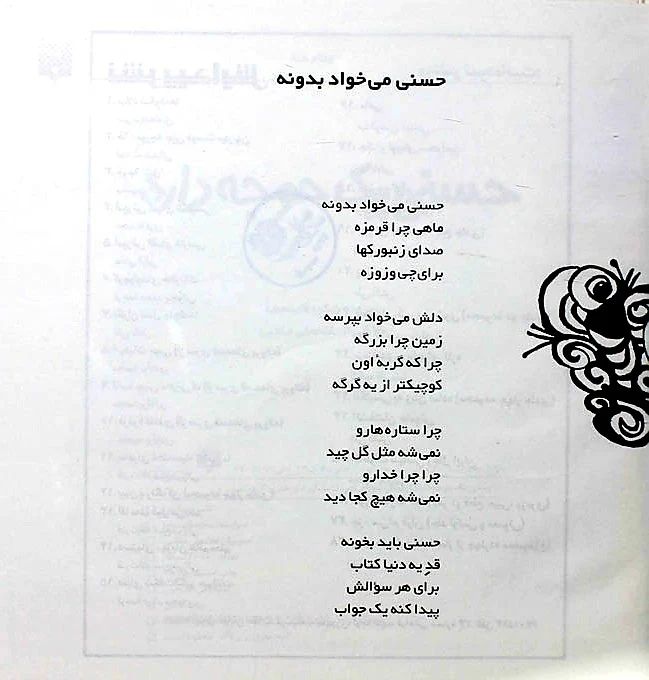 حسنی می‌خواد بدونه
حسنی می‌خواد بدونه
ماهی چرا قرمزه
صدای زنبورکها
برای‌چی وزوزه
دلش می‌خواد بپرسه
زمین چرا بزرگه
چرا که گربهٔ اون
کوچیکتر از یه گرگه
چرا ستاره‌هارو
نمی‌شه مثل گل چید
چرا چرا خدارو
نمی‌شه هیچ کجا دید
حسنی باید بخونه
قدِ یه دنیا کتاب
برای هر سؤالش
پیدا کنه یک جواب